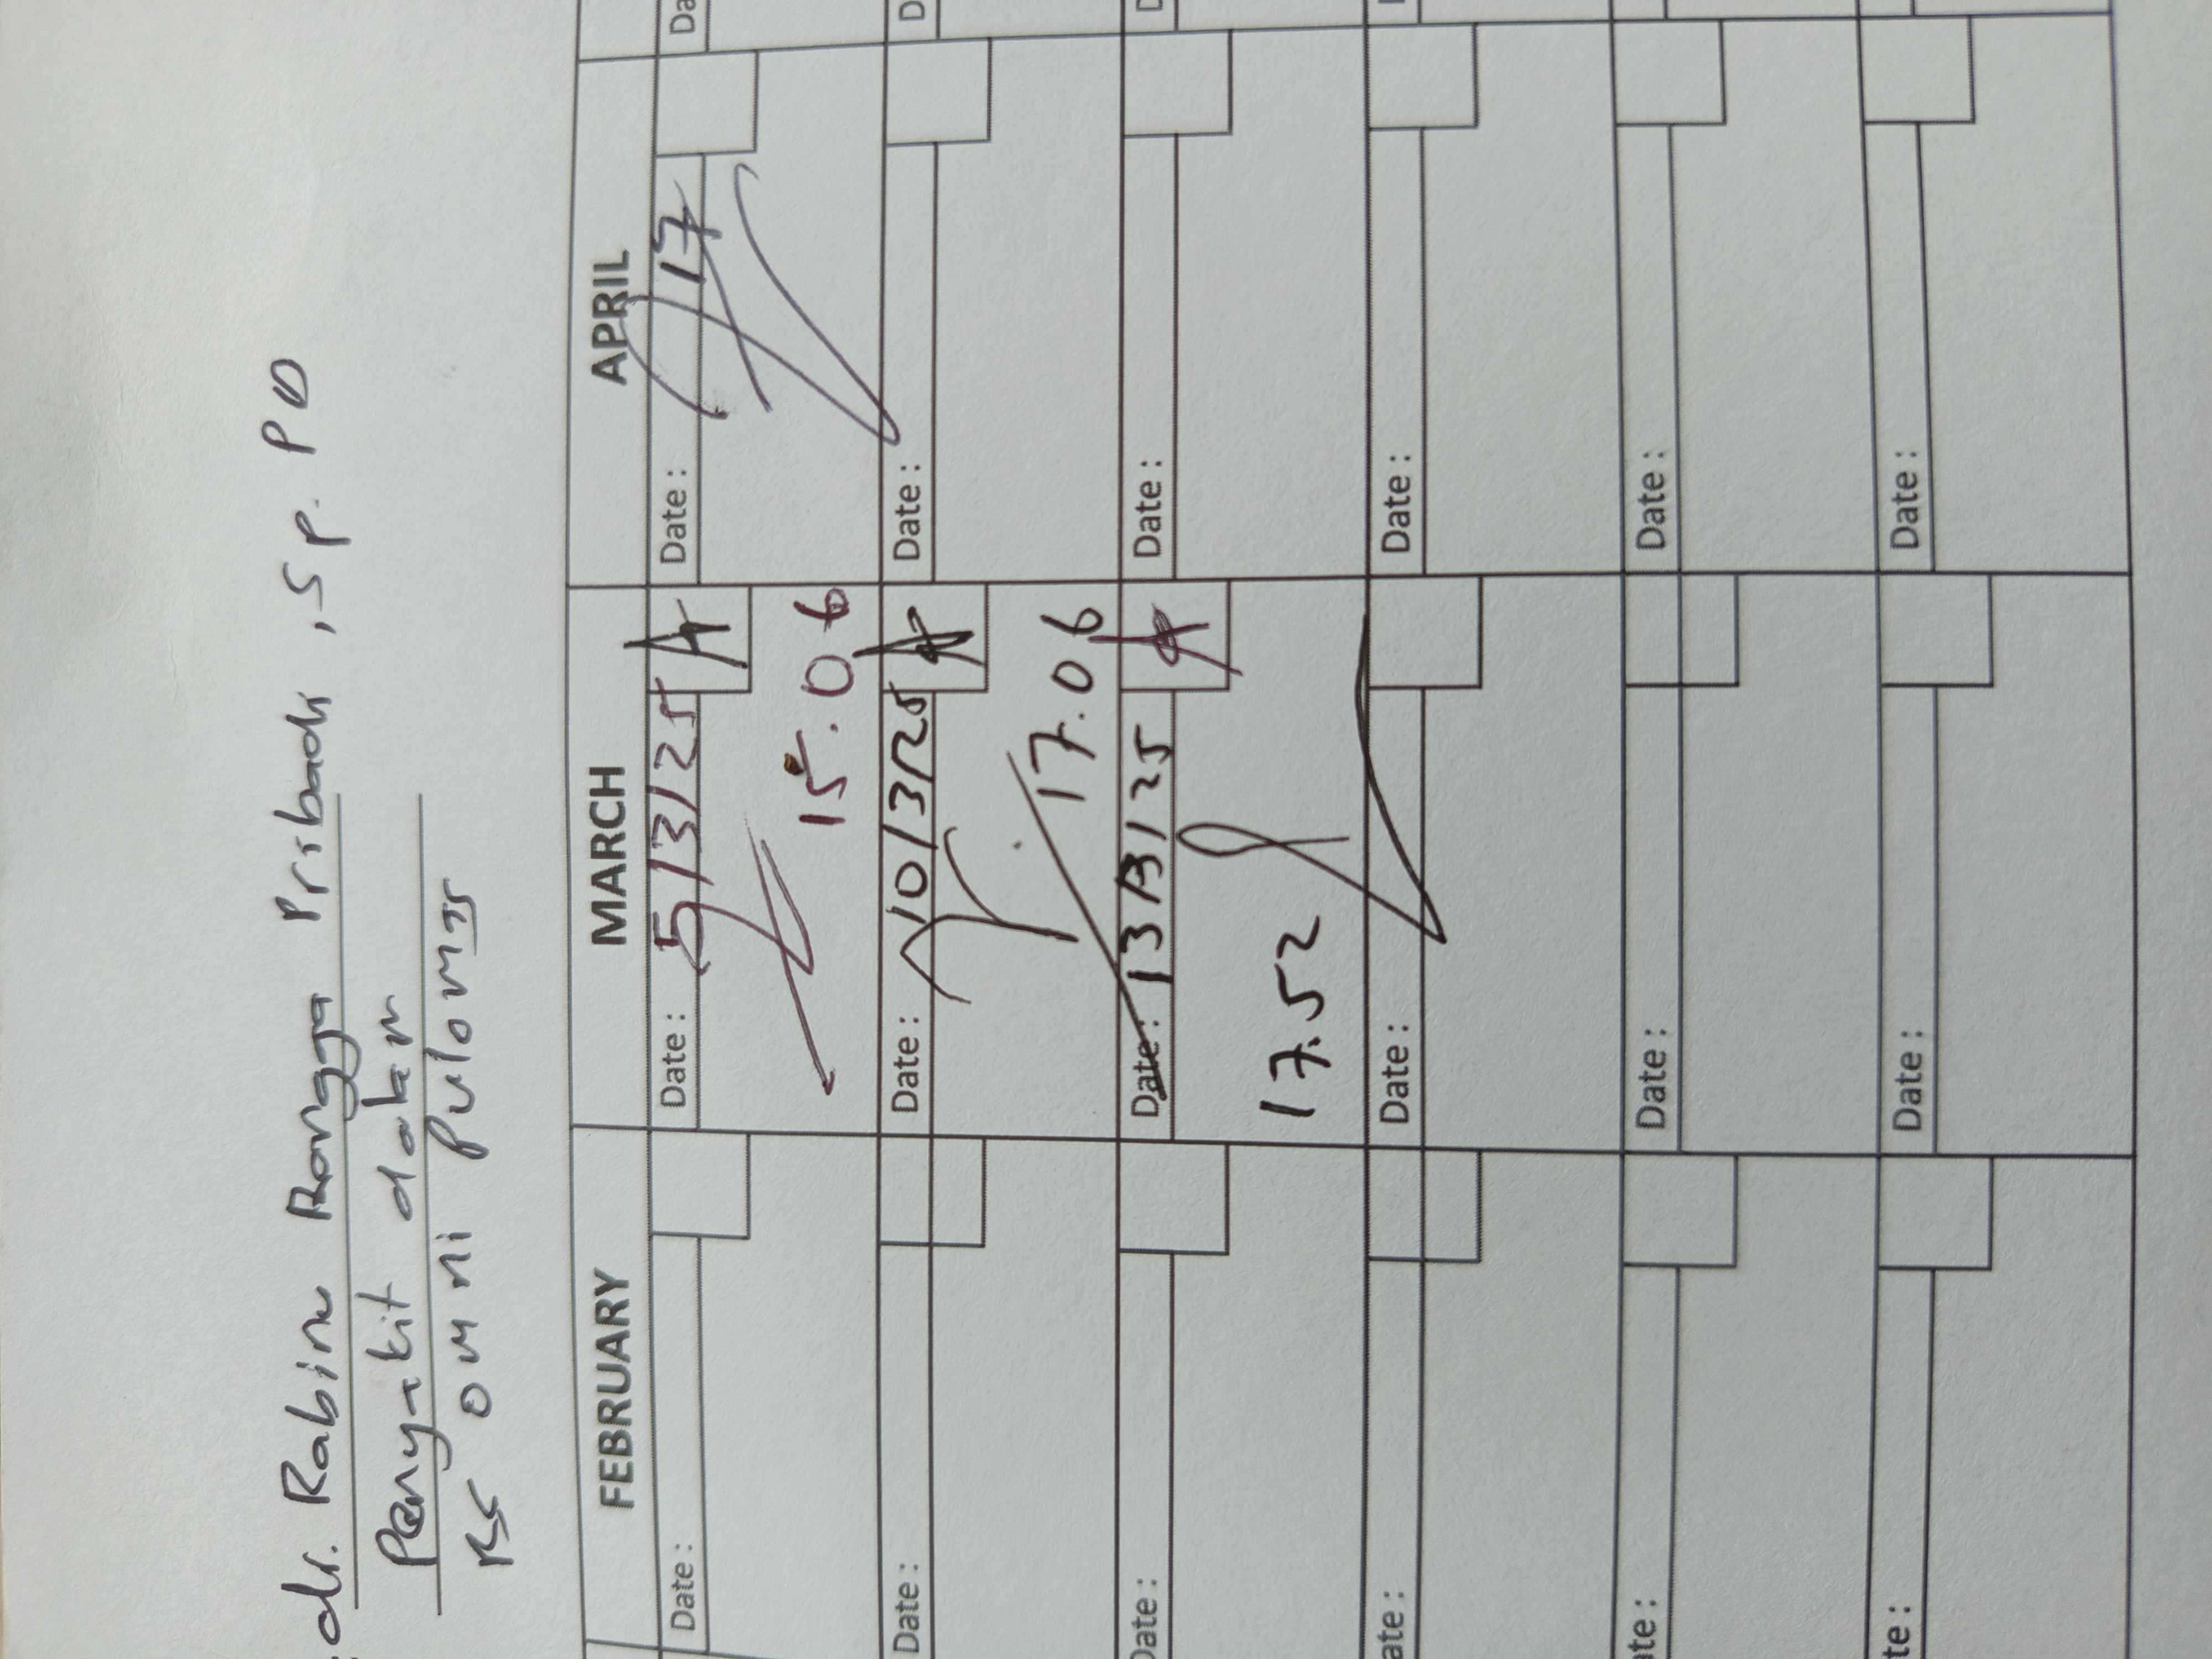 : dr. Rabin Rangga Pribadi, Sp. PD
Penyakit dalam
RS OMNI Pulomas
FEBRUARY MARCH APRIL
Date : Date : 5/3/25 Date : /17 Da
15.06
Date : Date : 10/3/25 Date : D
17.06
Date : Date : 13/3/25 Date : D
17.52
ate : Date : Date :
ate : Date : Date :
te : Date : Date :